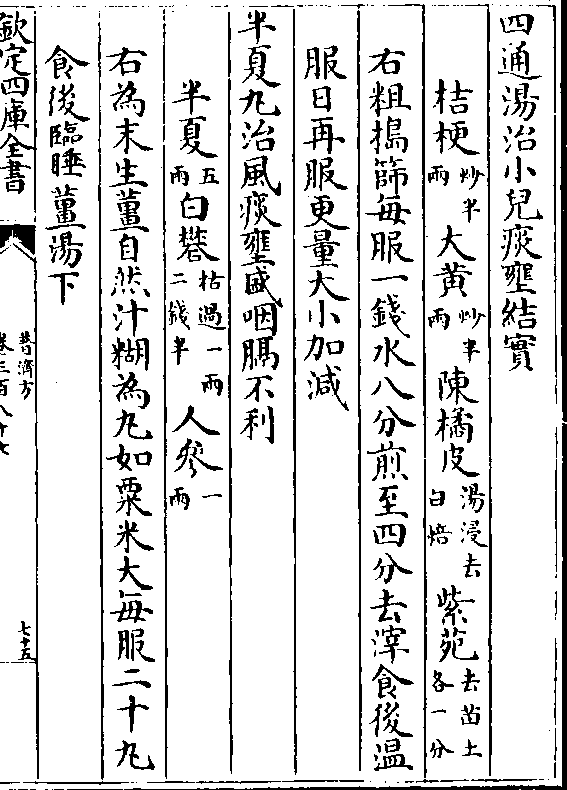 四通湯治小兒痰壅結實
桔梗炒半兩大黄炒半兩陳橘皮湯浸去白焙紫苑去苗土各一分
右粗搗篩每服一錢水八分煎至四分去滓食後温
服日再服更量大小加減
半夏丸治風痰壅盛咽膈不利
半夏五兩白礬枯過一兩二錢半人參一兩
右為末生薑自然汁糊為丸如粟米大每服二十丸
食後臨睡薑湯下
欽定四庫全書
普濟方
卷三百八十七
七十五